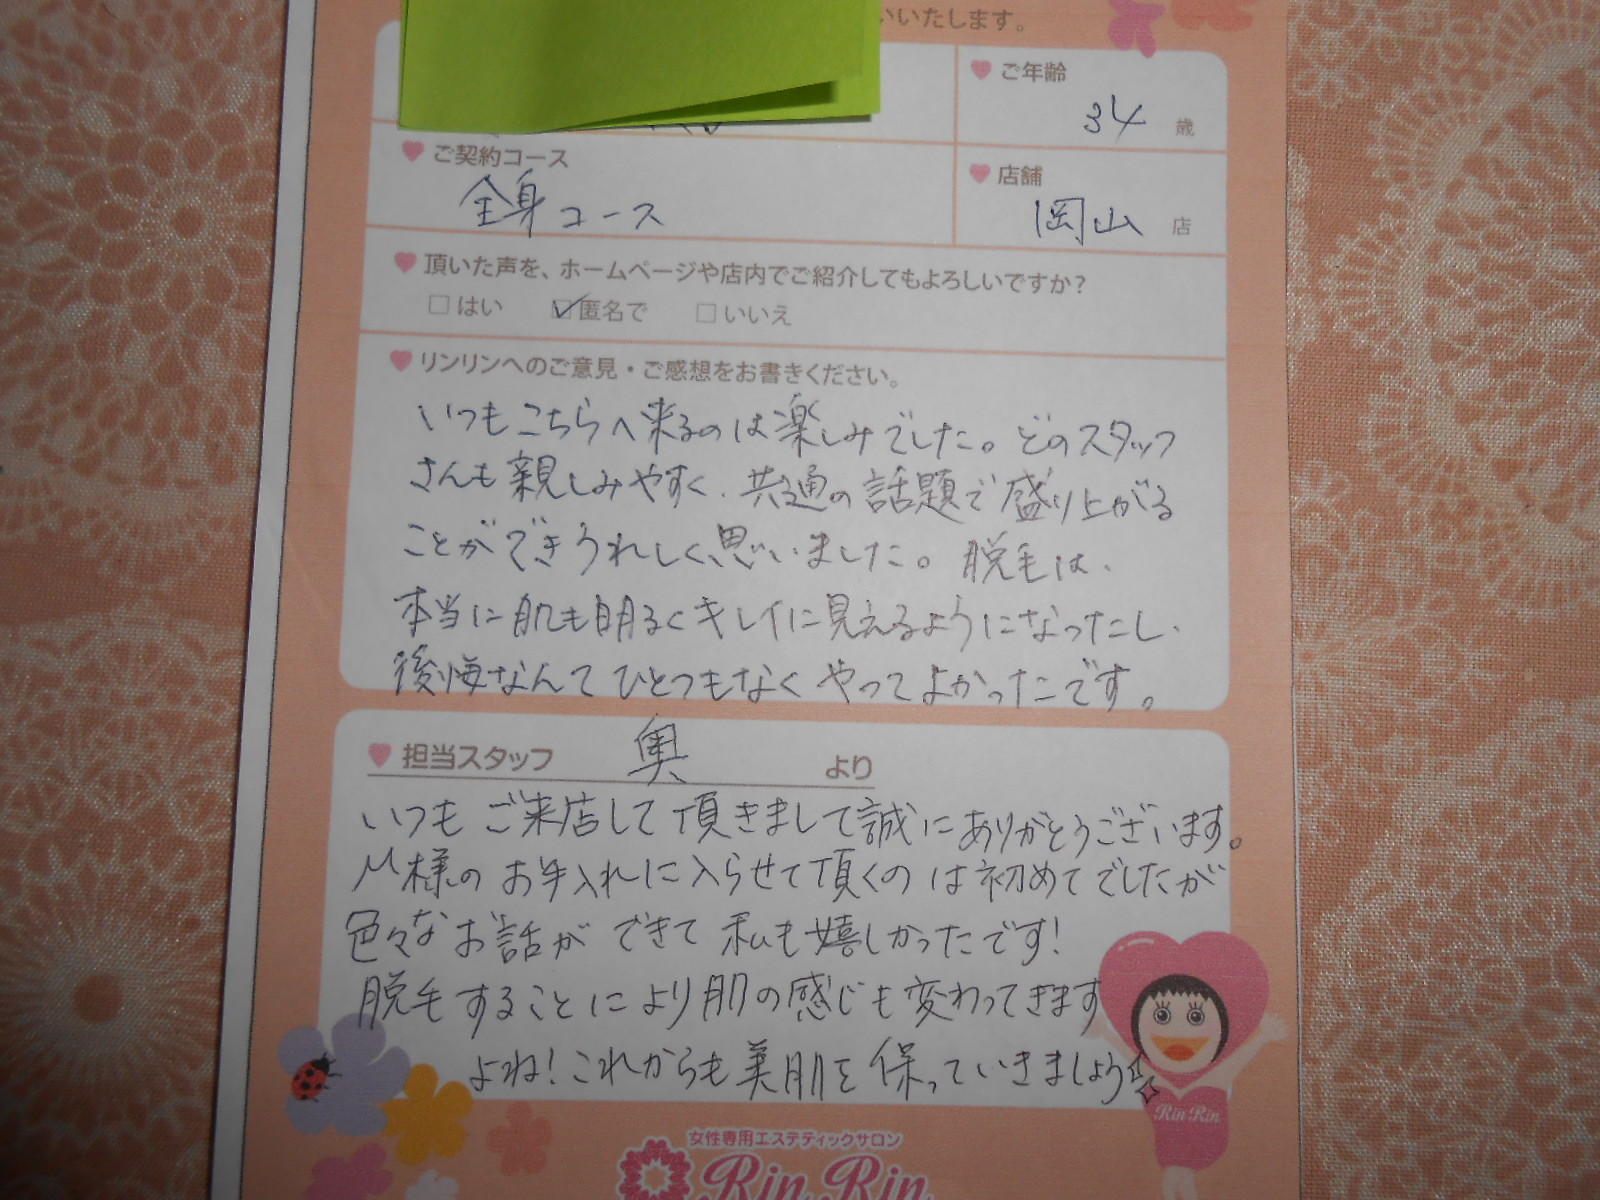 いいたします。
ご年齢
34 歳
ご契約コース
全身コース
店舗
岡山 店
頂いた声を、ホームページや店内でご紹介してもよろしいですか?
はい 匿名で いいえ
リンリンへのご意見・ご感想をお書きください。
いつもこちらへ来るのは楽しみでした。どのスタッフ
さんも親しみやすく、共通の話題で盛り上がる
ことができうれしく思いました。脱毛は、
本当に肌も明るくキレイに見えるようになったし、
後悔なんてひとつもなくやってよかったです。
担当スタッフ 奥 より
いつもご来店して頂きまして誠にありがとうございます。
M様のお手入れに入らせて頂くのは初めてでしたが
色々なお話ができて私も嬉しかったです!
脱毛することにより肌の感じも変わってきます
よね!これからも美肌を保っていきましょう☆
Rin Rin
女性専用エステティックサロン
Rin Rin